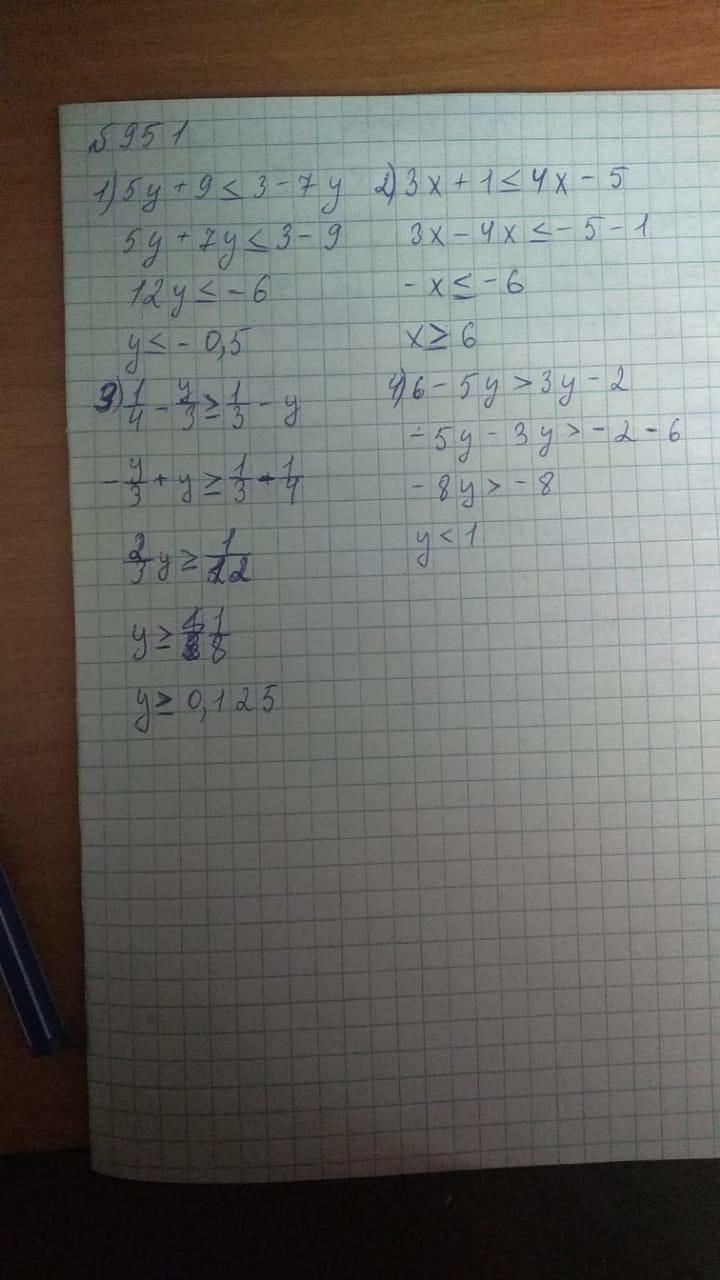 №951
1) 5y + 9 ≤ 3 - 7y
5y + 7y ≤ 3 - 9
12y ≤ - 6
y ≤ - 0,5
2) 3x + 1 ≤ 4x - 5
3x - 4x ≤ - 5 - 1
- x ≤ - 6
x ≥ 6
3) 1/4 - y/3 ≥ 1/3 - y
- y/3 + y ≥ 1/3 - 1/4
2/3 y ≥ 1/12
y ≥ 1/8
y ≥ 0,125
4) 6 - 5y > 3y - 2
- 5y - 3y > - 2 - 6
- 8y > - 8
y < 1